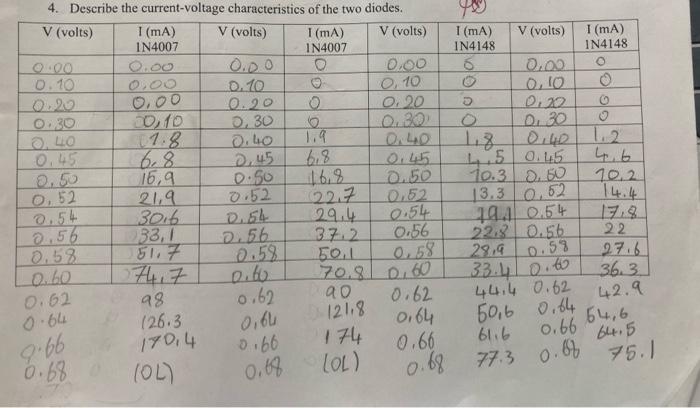 4. Describe the current-voltage characteristics of the two diodes.
V (volts) I (mA) 1N4007 V (volts) I (mA) 1N4007 V (volts) I (mA) 1N4148 V (volts) I (mA) 1N4148
0.00 0.00 0.00 0 0.00 0 0.00 0
0.10 0.00 0.10 0 0.10 0 0.10 0
0.20 0.00 0.20 0 0.20 0 0.20 0
0.30 0.10 0.30 0 0.30 0 0.30 0
0.40 1.8 0.40 1.9 0.40 1.8 0.40 1.2
0.45 6.8 0.45 6.8 0.45 4.5 0.45 4.6
0.50 16.9 0.50 16.8 0.50 10.3 0.50 10.2
0.52 21.9 0.52 22.7 0.52 13.3 0.52 14.4
0.54 30.6 0.54 29.4 0.54 0.54 17.8
0.56 33.1 0.56 37.2 0.56 22.8 0.56 22
0.58 51.7 0.58 50.1 0.58 28.9 0.58 27.6
0.60 74.7 0.60 70.8 0.60 33.4 0.60 36.3
0.62 98 0.62 90 0.62 44.4 0.62 42.9
0.64 126.3 0.64 121.8 0.64 50.6 0.64 54.6
0.66 170.4 0.66 174 0.66 61.6 0.66 64.5
0.68 (OL) 0.68 (OL) 0.68 77.3 0.68 75.1